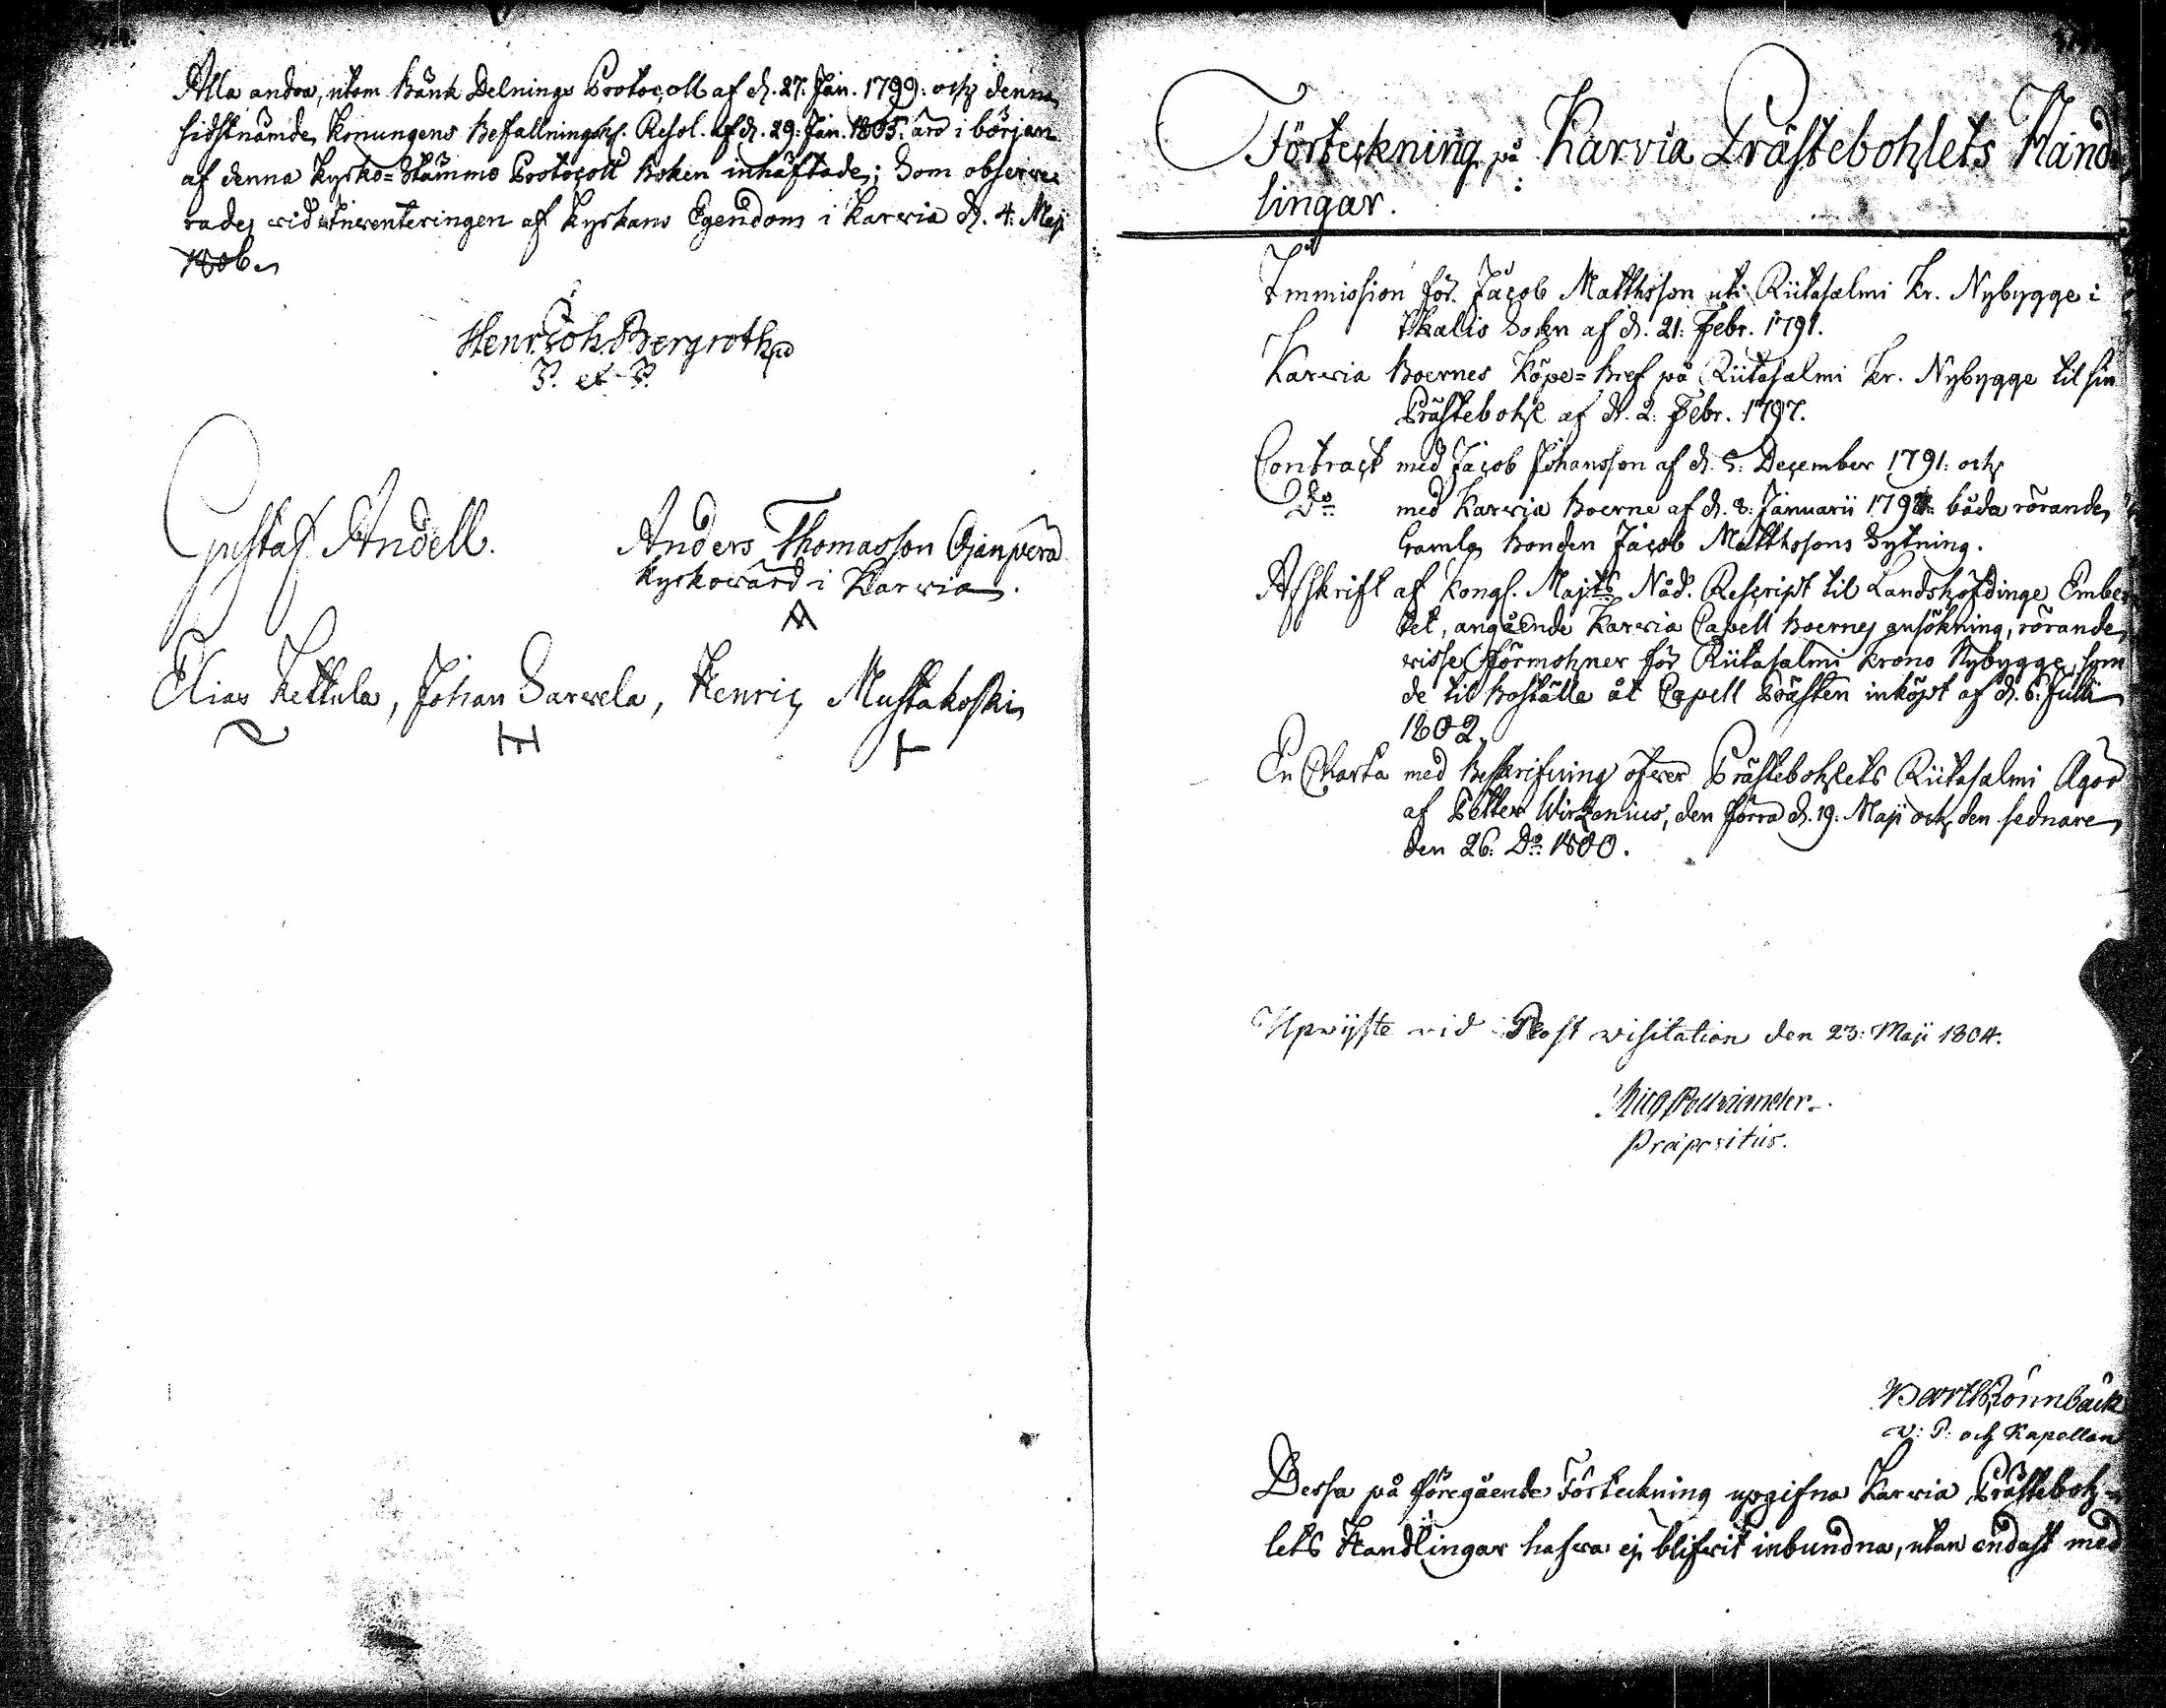 Alla andra, utom Bänk Delnings Protocoll af d. 27. Jan. 1799. och denna
sidstnämde Konungens Befallningsh. Resol. af d. 29. Jan. 1805. äro i början
af denna Kyrko=Stämmo Protocoll Boken inhäftade; Som observe
rades vid Inventeringen af Kyrkans Egendom i Karvia d. 4. Maji
1806.
Henr. Joh. Bergroth
P. et P.
Gustaf Andell.
Anders Thomasson Ojanperä
Kyrkovärd i Karvia.
Elias Kettula, Johan Sarvela, Henric Mustakoski
Förteckning på Karvia Prästebohlets Hand
lingar.
Immission för Jacob Matthsson uti Riitasalmi Kr. Nybygge i
Ikalis Sokn af d. 21. Febr. 1791.
Karvia Boernes Köpe=Bref på Riitasalmi Kr. Nybygge til sin
Prästebohl af d. 2. Febr. 1797.
Contract med Jacob Johansson af d. 5. December 1791. och
Do med Karvia Boerne af d. 8. Januarii båda rörande
Gamla Bonden Jacob Matthssons Sytning.
Afskrift af Kongl. Majts Nåd. Rescript til Landshöfdinge Embe
tet, angående Karvia Capell Boernes ansökning, rörande
visse förmohner för Riitasalmi Krono Nybygge, som
de til Boställe åt Capell Prästen inköpt af d. 6. Julii
1802.
En Charta med Beskrifning öfver Prästebohlets Riitasalmi Ägor
af Petter Wirzenius, den förra d. 19. Maji och den sednare
den 26. Do 1800.
Upwiste vid Prost visitation den 23. Maji 1804.
Præpositus.
Barth Rönnbäck
V. P. och Kapellan
Dessa på föregående Förteckning upgifna Karvia Prästeboh-
lets Handlingar hafva ej blifvit inbundna, utan endast med